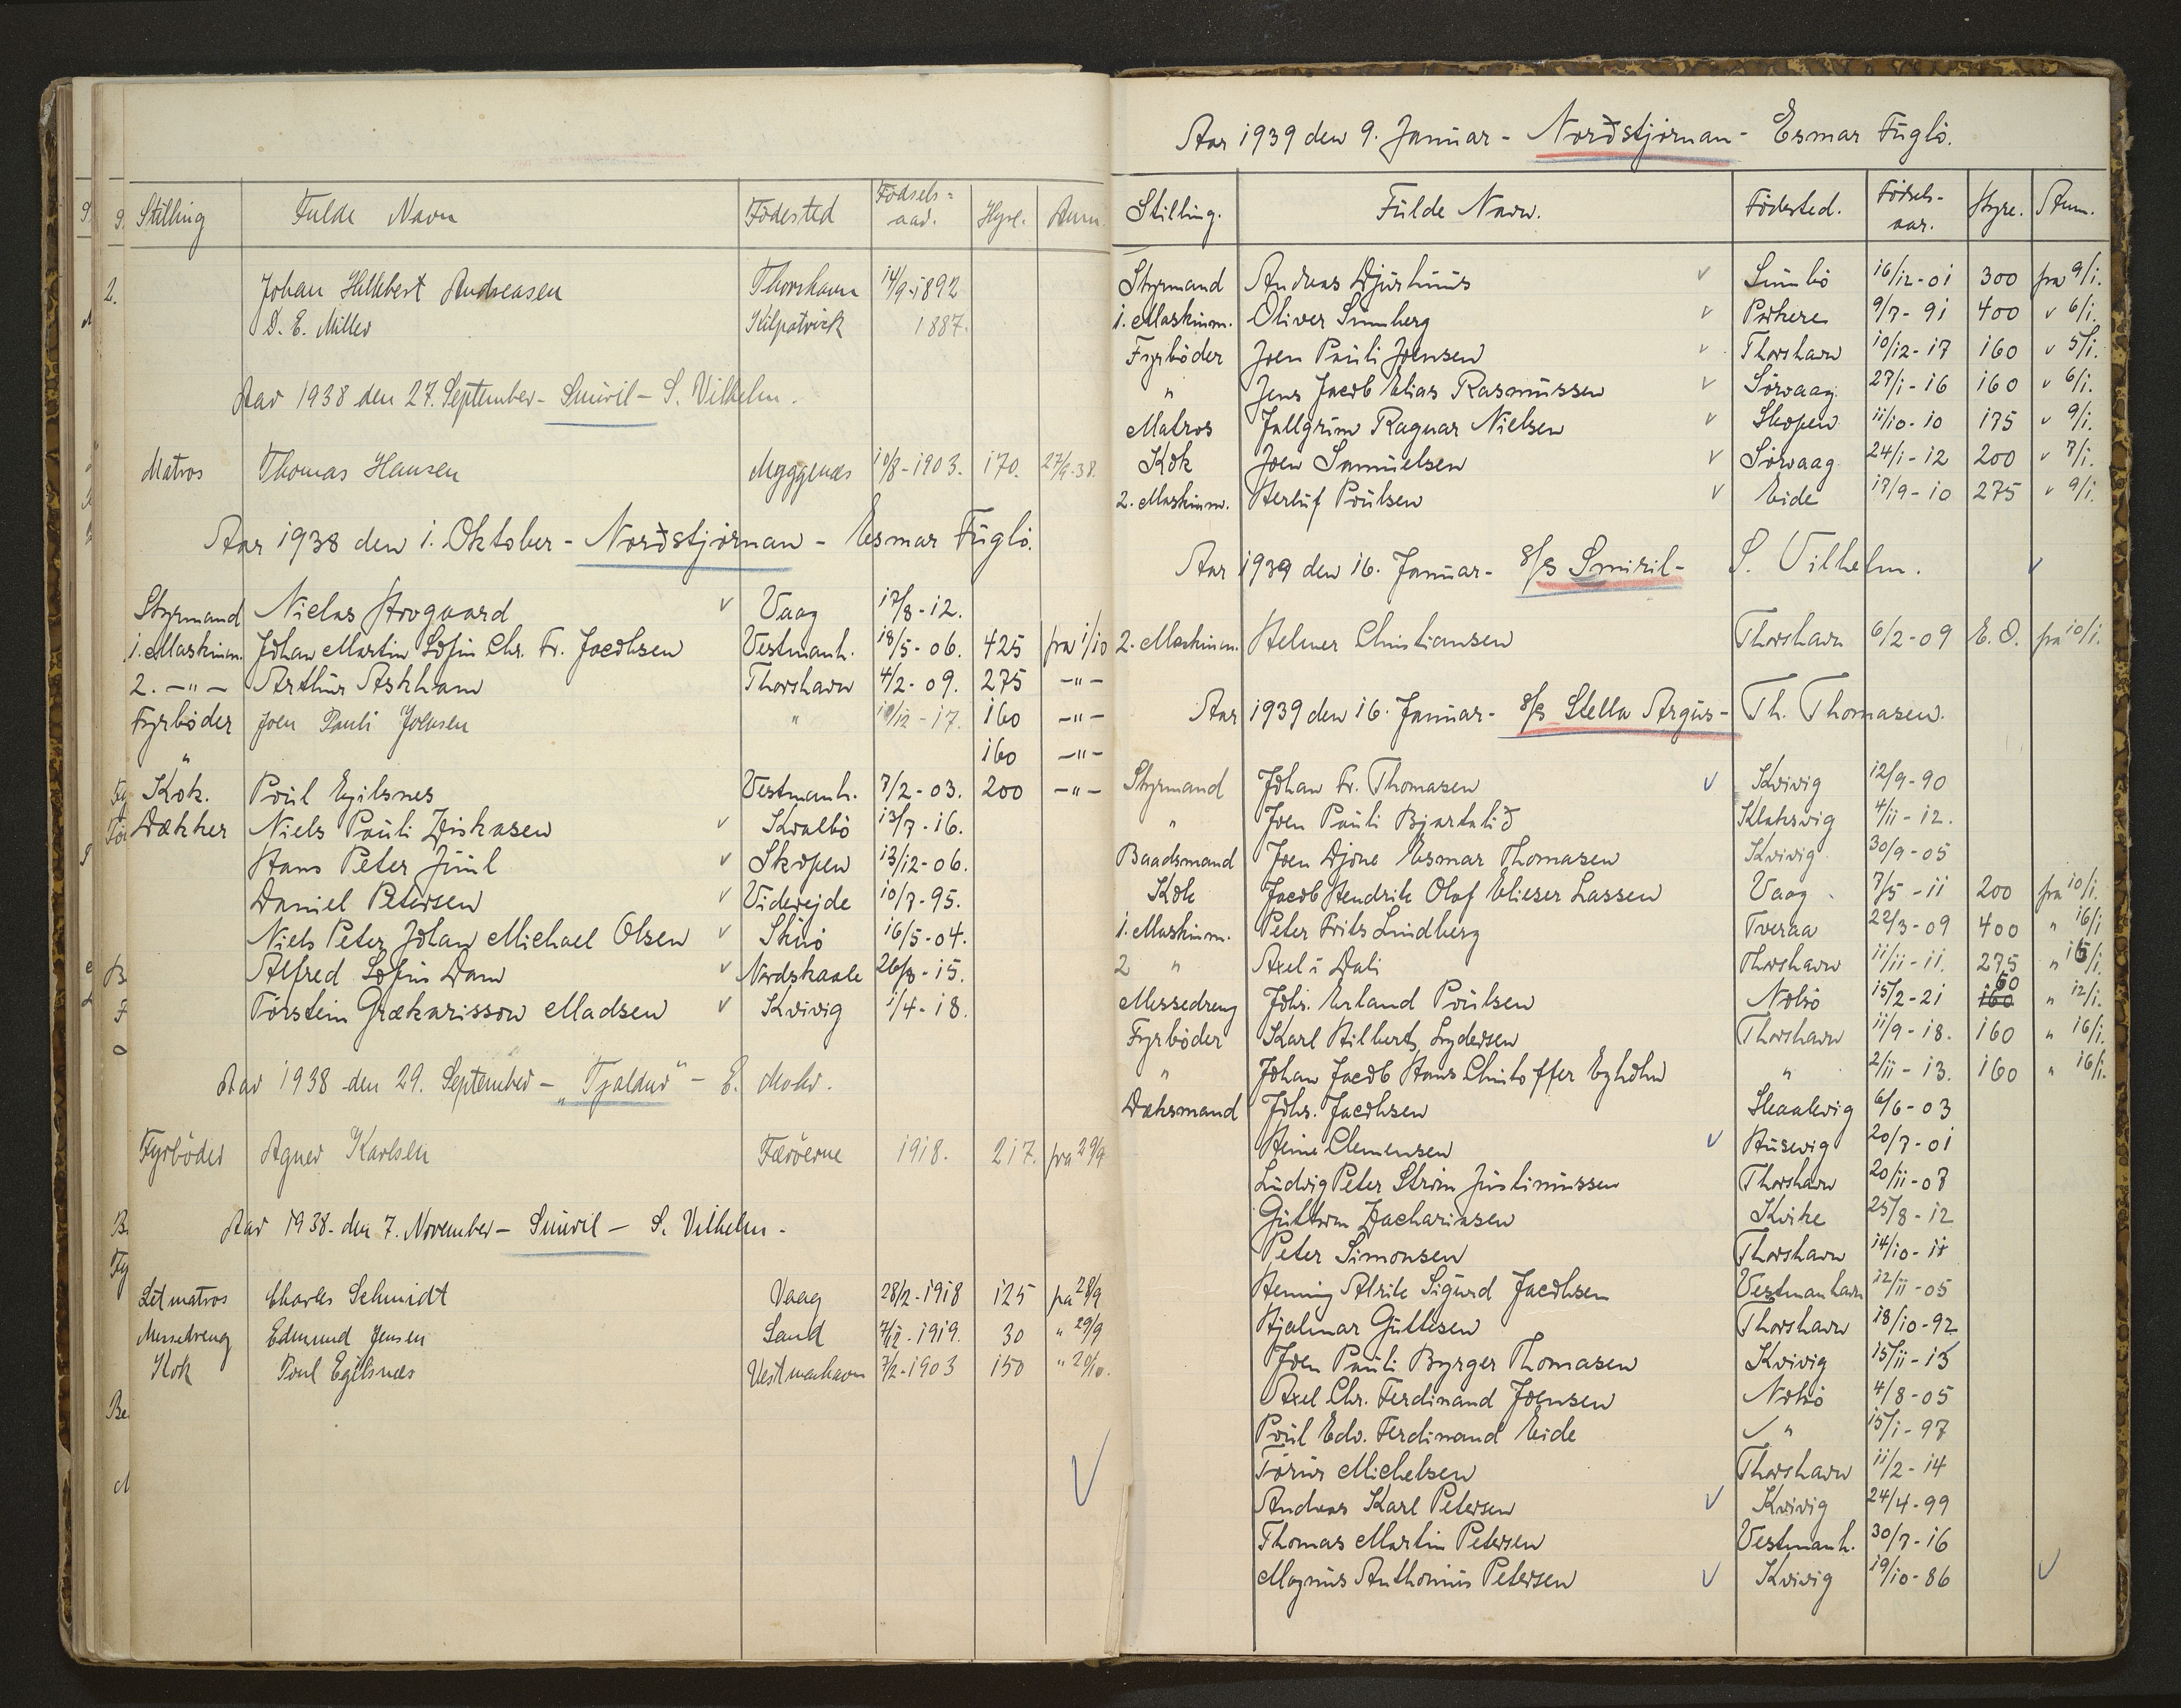 Stilling Fulde Navn Födested Födsels= aar. Hyre. Anm.
2. Johan Hillebert Andreasen Thorshavn 14/9-1892
D. E. Miller Kilpatrick 1887.
Aar 1938 den 27. September - Smiril - S. Vilhelm.
Matros Thomas Hansen Myggenæs 10/8-1903. 170. 27/9-38.
Aar 1938 den 1. Oktober - Norðstjörnan - Esmar Fuglö.
Styrmand Niclas Hovgaard v Vaag 17/8-12.
1. Maskinm. Johan Martin Sofus Chr. Fr. Jacobsen Vestmanh. 18/5-06. 425 fra 1/10
2. -"- Arthur Askham Thorshavn 4/2-09. 275 -"-
Fyrböder Joen Pauli Joensen " 10/12-17. 160 -"-
" 160 -"-
Kok. Poul Egilsnes Vestmanh. 7/2-03. 200 -"-
Dækker Niels Pauli Diskasen v Kvalbö 13/7-16.
Hans Peter Juul v Skopen 13/12-06.
Daniel Petersen v Viderejde 10/7-95.
Niels Peter Johan Michael Olsen v Skuö 16/5-04.
Alfred Sofus Dam v Nordskaale 26/8-15.
Torstein Grækarisson Madsen v Kvivig 1/4-18.
Aar 1938 den 29. September - "Tjaldur" - E. Mohr.
Fyrböder Agner Karlsen Færöerne 1918. 217. fra 29/9
Aar 1938. den 7. November - Smiril - S. Vilhelm -
Letmatros Charles Schmidt Vaag 28/2-1918 125 fra 28/9
Messedreng Edmund Jensen Sand 7/12-1919. 30 " 29/9
Kok Poul Egilsnæs Vestmanhavn 7/2-1903 150 " 20/10.
Aar 1939 den 9. Januar - Norðstjörnan - Esmar Fuglö.
Stilling. Fulde Navn. Födested. Födsels- aar. Hyre. Anm.
Styrmand Andreas Djurhuus v Sumbö 16/12-01 300 fra 9/1.
1. Maskinm. Oliver Sumberg v Porkere 9/7-91 400 v 6/1.
Fyrböder Joen Pauli Joensen v Thorshavn 10/12-17 160 v 5/1.
" Jens Jacob Elias Rasmussen v Sörvaag 27/1-16 160 v 6/1.
Matros Jallgrim Ragnar Nielsen v Skopen 11/10-10 175 v 9/1.
Kok Joen Samuelsen v Sörvaag 24/1-12 200 v 7/1.
2. Maskinm. Herluf Poulsen v Eide 17/9-10 275 v 9/1.
Aar 1939 den 16. Januar - S/S Smiril - S. Vilhelm. v
2. Maskinm. Helmer Christiansen Thorshavn 6/2-09 E.O. fra 10/1.
Aar 1939 den 16. Januar - S/S Stella Argus - Th. Thomasen.
Styrmand Johan Fr. Thomasen v Kvivig 12/9-90
" Joen Pauli Bjartalið Klaksvig 4/11-12.
Baadsmand Joen Djone Esmar Thomasen Kvivig 30/9-05
Kok Jacob Hendrik Olaf Elieser Lassen Vaag 7/5-11 200 fra 10/1.
1. Maskinm. Peter Frits Lindberg Tveraa 22/3-09 400 " 16/1
2 " Axel i Dali Thorshavn 11/11-11. 275 " 16/1.
Messedreng Johs. Erland Poulsen Nolsö 15/2-21 160 60 " 12/1.
Fyrböder Karl Hilbert Lydersen Thorshavn 11/9-18. 160 " 16/1.
" Johan Jacob Hans Christoffer Eyholm " 2/11-13. 160 " 16/1.
Dæksmand Johs. Jacobsen Skaalevig 6/6-03
Heine Clemensen v Husevig 20/7-01
Ludvig Peter Ström Justinussen Thorshavn 20/11-07
Guttorm Zachariasen Kvike 25/8-12
Peter Simonsen Thorshavn 14/10-11
Henning Alrik Sigurd Jacobsen Vestmanhavn 12/11-05
Hjalmar Guttesen Thorshavn 18/10-92
Joen Pauli Byrger Thomasen Kvivig 15/11-13
Axel Chr. Ferdinand Joensen Nolsö 4/8-05
Poul Edv. Ferdinand Eide v " 15/1-97
Torur Michelsen Thorshavn 11/2-14
Andreas Karl Petersen v Kvivig 24/4-99
Thomas Martin Petersen Vestmanh. 30/7-16
Magnus Anthonius Petersen v Kvivig 19/10-86 v